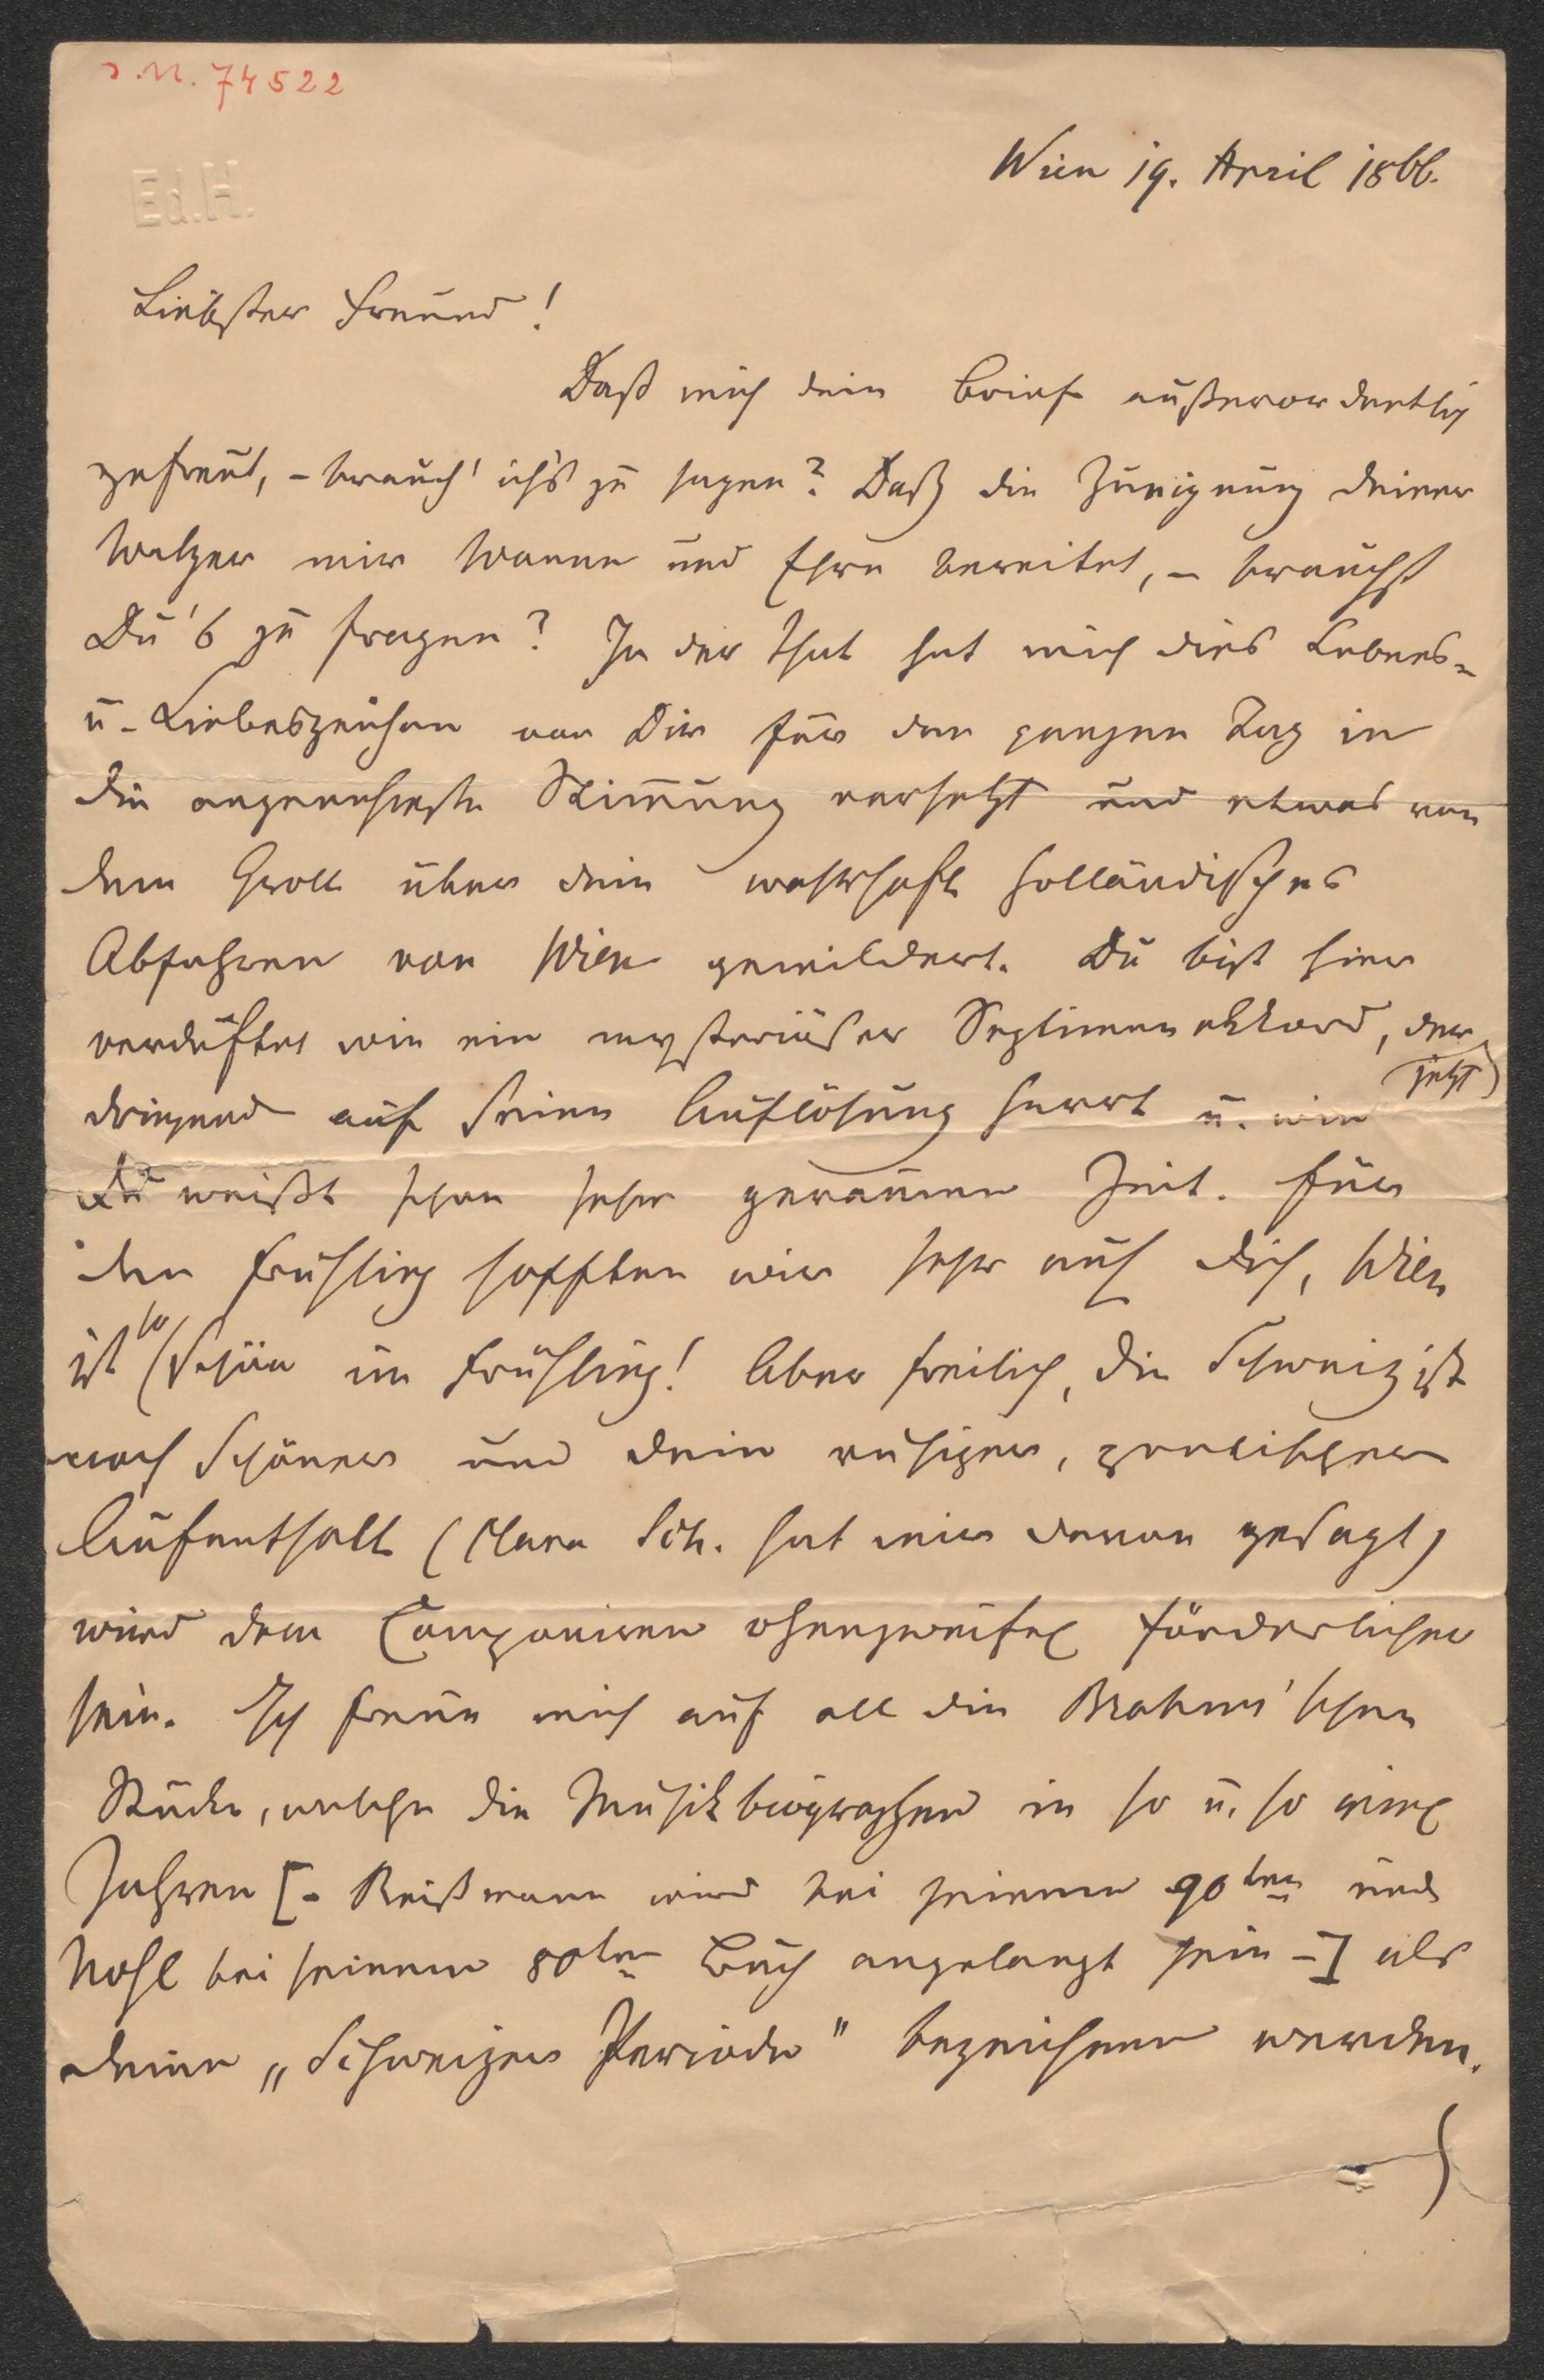 I.N. 74522
Ed.H.
Wien 19. April 1866.
Liebster Freund!
Daß mich dein Brief außerordentlich
gefreut, – brauch' ich's zu sagen? Daß die Zueignung deiner
Walzer mir Wonne und Ehre bereitet, – brauchst
Du's zu fragen? In der That hat mich dies Lebens-
u. Liebeszeichen von Dir für den ganzen Tag in
die angenehmste Stimmung versetzt und etwas von
dem Groll über dein wahrhaft holländisches
Abfahren von Wien gemildert. Du bist hier
verduftet wie ein mysteriöser Septimenakkord, der
jetzt
dringend auf seine Auflösung harrt u. wie
Du weißt schon sehr geraume Zeit. Für
den Frühling hofften wir sehr auf dich, Wien
so
ist schön im Frühling! Aber freilich, die Schweiz ist
noch schöner und dein ruhiger, poetischer
Aufenthalt (Clara Sch. hat mir davon gesagt)
wird dem Componiren ohnezweifel förderlicher
sein. Ich freue mich auf all die Brahms'schen
Stücke, welche die Musikbiographen in so u. so viel
Jahren [– Reißmann wird bei seinem 90ten und
Nohl bei seinem 80ten Buch angelangt sein –] als
deine „Schweizer Periode" bezeichnen werden.